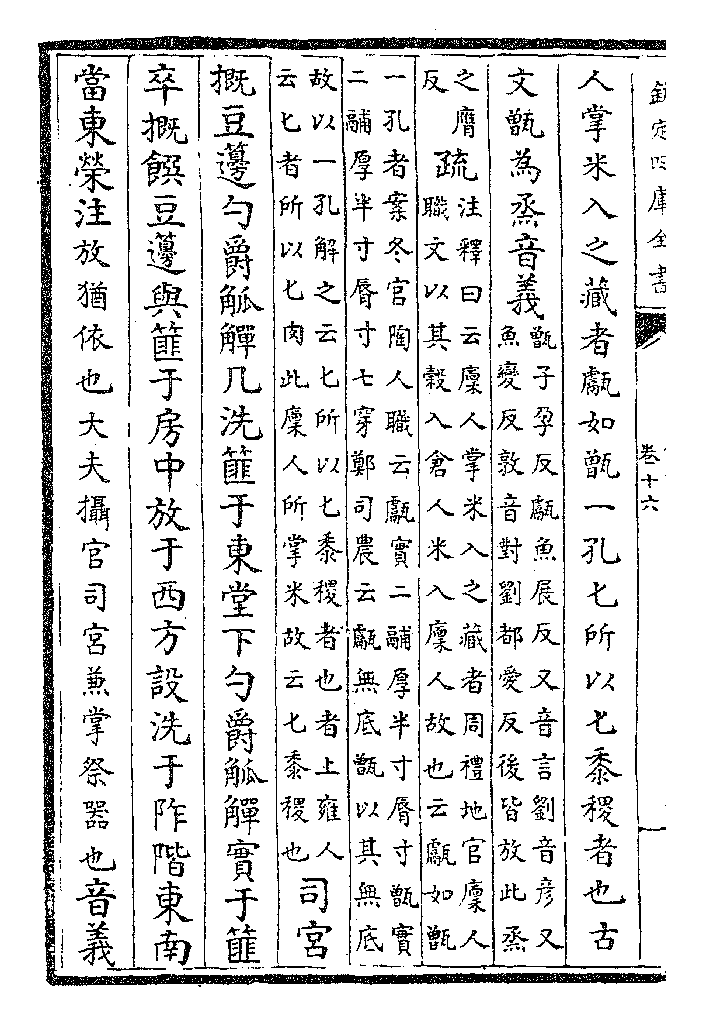 欽定四庫全書
卷十六
人掌米入之藏者甗如甑一孔匕所以匕黍稷者也古
文甑為烝音義
甑子孕反甗魚展反又音言劉音彦又
魚變反敦音對劉都愛反後皆放此烝
之膺
反
疏
注釋曰云廩人掌米入之藏者周禮地官廩人
職文以其榖入倉人米入廩人故也云甗如甑
一孔者案冬官陶人職云甗實二鬴厚半寸脣寸甑實
二鬴厚半寸脣寸七穿鄭司農云甗無底甑以其無底
故以一孔解之云匕所以匕黍稷者也者上雍人
云匕者所以匕肉此廩人所掌米故云匕黍稷也
司宮
概豆籩勺爵觚觶几洗篚于東堂下勺爵觚觶實于篚
卒概饌豆籩與篚于房中放于西方設洗于阼階東南
當東榮注放猶依也大夫攝官司宮兼掌祭器也音義